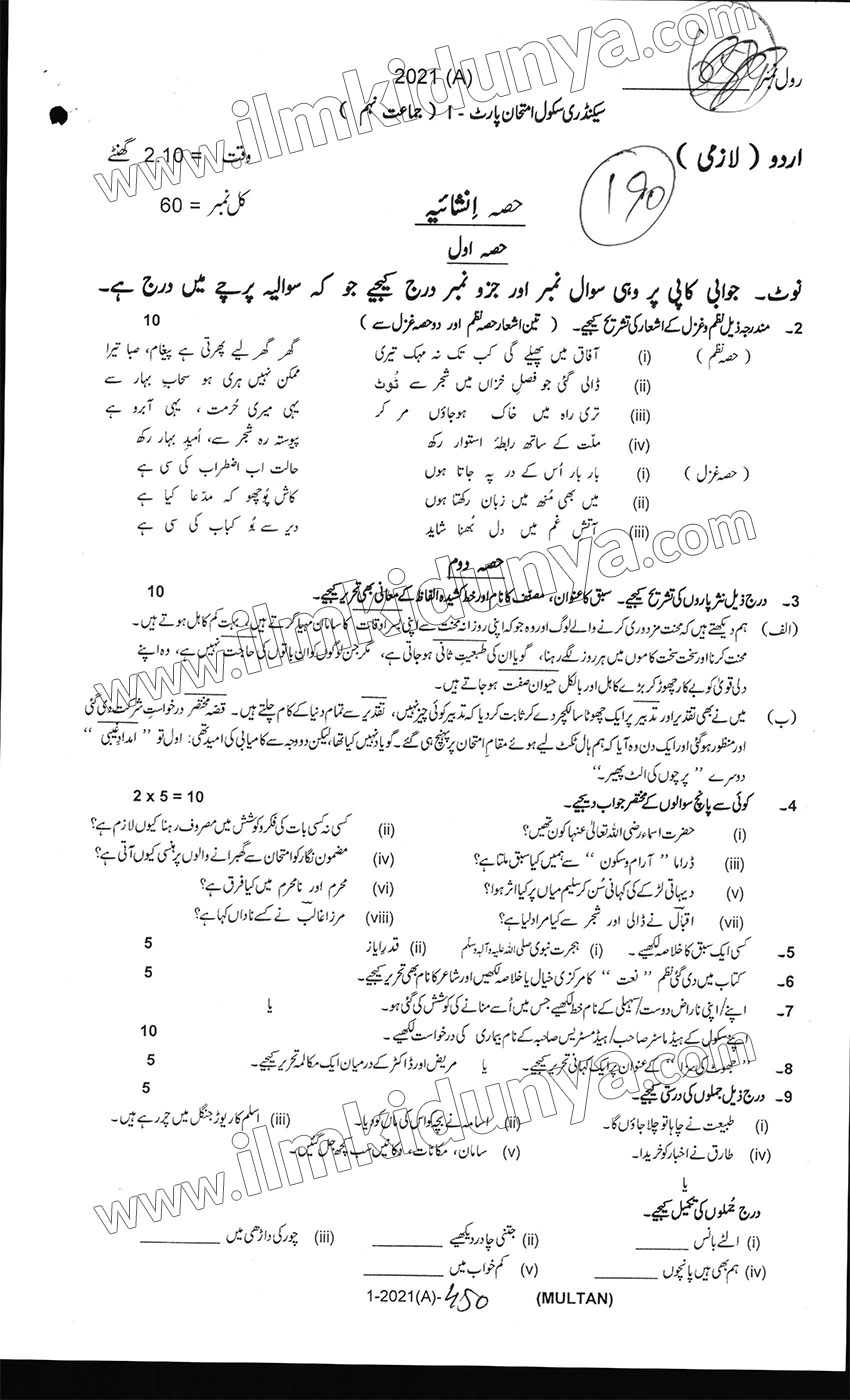 www.ilmkidunya.com
رول نمبر ____________
2021 (A)
سیکنڈری سکول امتحان پارٹ - I ( جماعت نہم )
اردو ( لازمی )
وقت = 2.10 گھنٹے
190
کل نمبر = 60
حصہ اِنشائیہ
حصہ اول
نوٹ۔ جوابی کاپی پر وہی سوال نمبر اور جزو نمبر درج کیجیے جو کہ سوالیہ پرچے میں درج ہے۔
2۔ مندرجہ ذیل نظم و غزل کے اشعار کی تشریح کیجیے۔ ( تین اشعار حصہ نظم اور دو حصہ غزل سے ) 10
( حصہ نظم ) (i) آفاق میں پھیلے گی کب تک نہ مہک تیری گھر گھر لیے پھرتی ہے پیغام، صبا تیرا
(ii) ڈالی گئی جو فصلِ خزاں میں شجر سے ٹوٹ ممکن نہیں ہری ہو سحابِ بہار سے
(iii) تری راہ میں خاک ہوجاؤں مر کر یہی میری حُرمت ، یہی آبرو ہے
(iv) ملّت کے ساتھ رابطۂ استوار رکھ پیوستہ رہ شجر سے، اُمیدِ بہار رکھ
( حصہ غزل ) (i) بار بار اُس کے در پہ جاتا ہوں حالت اب اضطراب کی سی ہے
(ii) میں بھی مُنھ میں زبان رکھتا ہوں کاش پُوچھو کہ مدّعا کیا ہے
(iii) آتشِ غم میں دل بُھنا شاید دیر سے بُو کباب کی سی ہے
حصہ دوم
3۔ درج ذیل نثرپاروں کی تشریح کیجیے۔ سبق کا عنوان، مصنف کا نام اور خط کشیدہ الفاظ کے معانی بھی تحریر کیجیے۔ 10
(الف) ہم دیکھتے ہیں کہ محنت مزدوری کرنے والے لوگ اور وہ جو کہ اپنی روزانہ محنت سے اپنی بسر اوقات کا سامان مہیا کرتے ہیں، بہت کم کاہل ہوتے ہیں۔
محنت کرنا اور سخت سخت کاموں میں ہر روز لگے رہنا، گویا ان کی طبیعتِ ثانی ہوجاتی ہے، مگر جن لوگوں کو ان باتوں کی حاجت نہیں ہے، وہ اپنے
دلی قویٰ کو بے کار چھوڑ کر بڑے کاہل اور بالکل حیوان صفت ہوجاتے ہیں۔
(ب) میں نے بھی تقدیر اور تدبیر پر ایک چھوٹا سا لکچر دے کر ثابت کر دیا کہ تدبیر کوئی چیز نہیں، تقدیر سے تمام دنیا کے کام چلتے ہیں۔ قصّہ مختصر درخواستِ شرکت دی گئی
اور منظور ہوگئی اور ایک دن وہ آیا کہ ہم ہال ٹکٹ لیے ہوئے مقامِ امتحان پر پہنچ ہی گئے۔ گو یاد نہیں کیا تھا، لیکن دو وجہ سے کامیابی کی امید تھی: اول تو ” امدادِ غیبی “
دوسرے ” پرچوں کی الٹ پھیر۔“
4۔ کوئی سے پانچ سوالوں کے مختصر جواب دیجیے۔ 2 x 5 = 10
(i) حضرت اسماء رضی اللہ تعالیٰ عنہا کون تھیں؟ (ii) کسی نہ کسی بات کی فکر و کوشش میں مصروف رہنا کیوں لازم ہے؟
(iii) ڈراما ” آرام و سکون “ سے ہمیں کیا سبق ملتا ہے؟ (iv) مضمون نگار کو امتحان سے گھبرانے والوں پر ہنسی کیوں آتی ہے؟
(v) دیہاتی لڑکے کی کہانی سُن کر سلیم میاں پر کیا اثر ہوا؟ (vi) محرم اور نامحرم میں کیا فرق ہے؟
(vii) اقبالؒ نے ڈالی اور شجر سے کیا مراد لیا ہے؟ (viii) مرزا غالبؔ نے کسے ناداں کہا ہے؟
5۔ کسی ایک سبق کا خلاصہ لکھیے۔ (i) ہجرت نبوی صلی اللہ علیہ وآلہٖ وسلم (ii) قدرِ ایاز 5
6۔ کتاب میں دی گئی نظم ” نعت “ کا مرکزی خیال یا خلاصہ لکھیں اور شاعر کا نام بھی تحریر کیجیے۔ 5
7۔ اپنے/اپنی ناراض دوست/سہیلی کے نام خط لکھیے جس میں اُسے منانے کی کوشش کی گئی ہو۔ یا
اپنے سکول کے ہیڈ ماسٹر صاحب/ہیڈ مسٹریس صاحبہ کے نام بیماری کی درخواست لکھیے۔ 10
8۔ ” جھوٹ کی سزا “ کے عنوان پر ایک کہانی تحریر کیجیے۔ یا مریض اور ڈاکٹر کے درمیان ایک مکالمہ تحریر کیجیے۔ 5
9۔ درج ذیل جملوں کی درستی کیجیے۔ 5
(i) طبیعت نے چاہا تو چلا جاؤں گا۔ (ii) اسامہ نے بچہ کو اس کی ماں کو دیا۔ (iii) اسلم کا ریوڑ جنگل میں چر رہے ہیں۔
(iv) طارق نے اخبار کو خریدا۔ (v) سامان، مکانات، دکانیں سب کچھ جل گئیں۔
یا
درج جُملوں کی تکمیل کیجیے۔
(i) الٹے بانس ________ (ii) جتنی چادر دیکھیے ________ (iii) چور کی داڑھی میں ________
(iv) ہم بھی ہیں پانچوں ________ (v) کم خواب میں ________
1-2021(A)-450 (MULTAN)